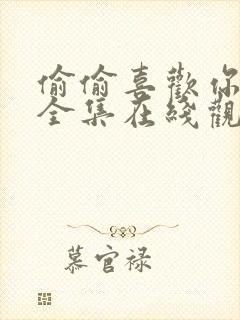 偷偷喜歡你
全集在綫觀
慕官禄